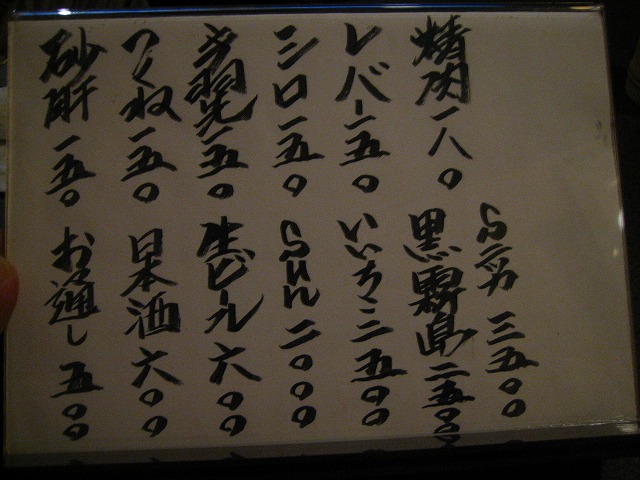 精肉一八〇
レバー一五〇
シロ一五〇
手羽先一五〇
つくね一五〇
砂肝一五〇
Sニッカ三五〇〇
黒霧島二五〇〇
いいちこ二五〇〇
Sun二〇〇〇
生ビール六〇〇
日本酒六〇〇
お通し五〇〇